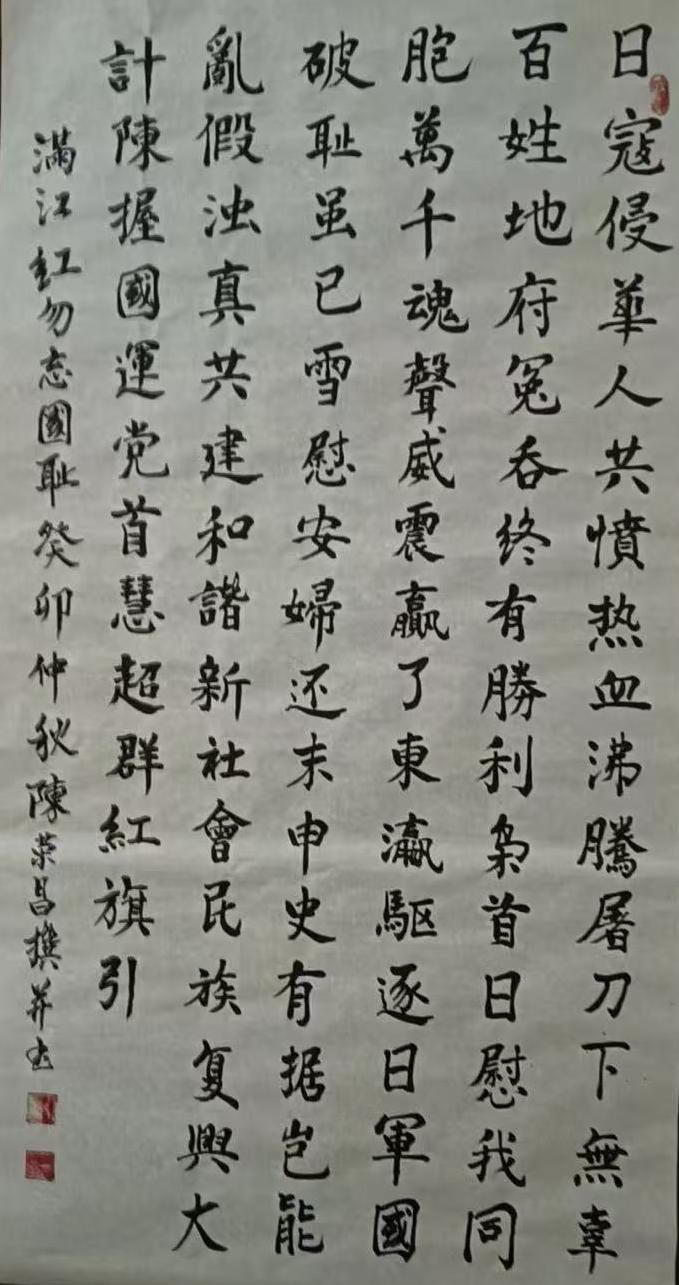 日寇侵華人共憤热血沸騰屠刀下無辜
百姓地府冤吞终有勝利枭首日慰我同
胞萬千魂聲威震贏了東瀛駆逐日軍國
破耻虽已雪慰安婦还末申史有据岂能
亂假浊真共建和諧新社會民族复興大
計陳握國運党首慧超群紅旗引
满江紅勿忘國耻癸卯仲秋陳荣昌撰并书